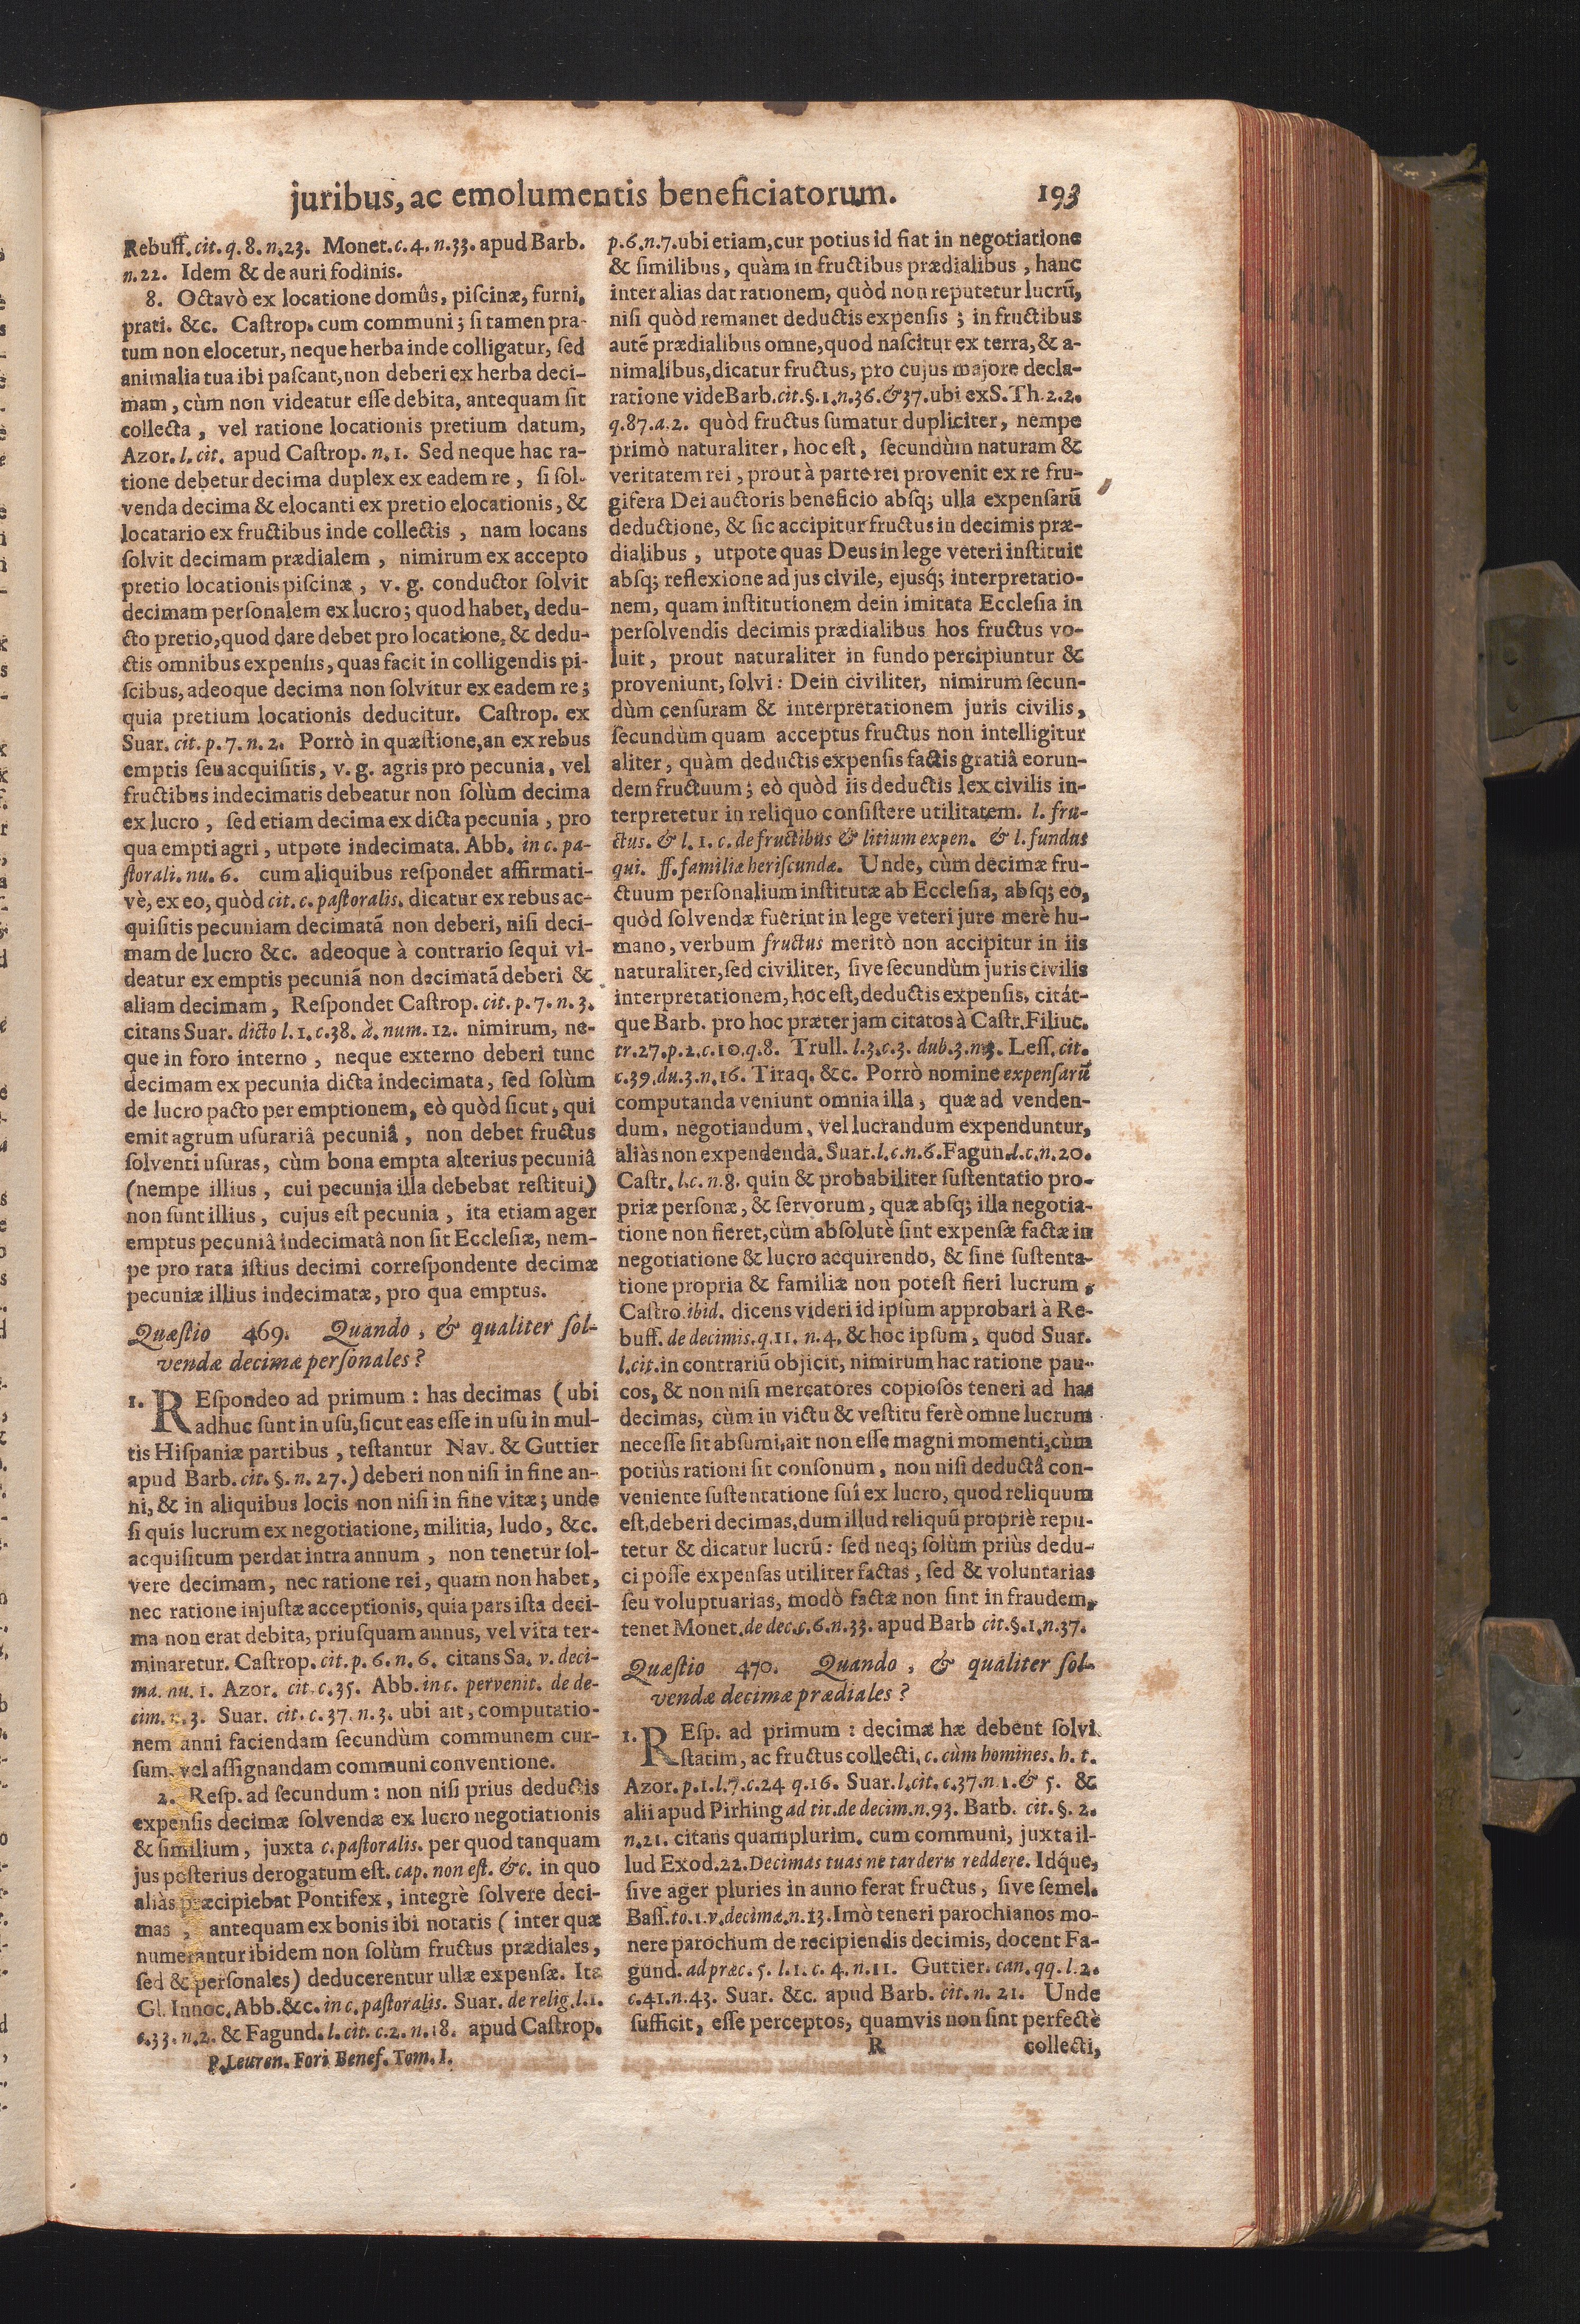 juribus, ac emolumentis beneficiatorum. 193
Rebuff. cit. q. 8. n. 23. Monet. c. 4. n. 33. apud Barb.
n. 22. Idem & de auri fodinis.
8. Octavò ex locatione domûs, piſcinæ, furni,
prati. &c. Caſtrop. cum communi; ſi tamen pra-
tum non elocetur, neque herba inde colligatur, ſed
animalia tua ibi paſcant, non deberi ex herba deci-
mam, cùm non videatur eſſe debita, antequam ſit
collecta, vel ratione locationis pretium datum,
Azor. l. cit. apud Caſtrop. n. 1. Sed neque hac ra-
tione debetur decima duplex ex eadem re, ſi ſol-
venda decima & elocanti ex pretio elocationis, &
locatario ex fructibus inde collectis, nam locans
ſolvit decimam prædialem, nimirum ex accepto
pretio locationis piſcinæ, v. g. conductor ſolvit
decimam perſonalem ex lucro; quod habet, dedu-
cto pretio, quod dare debet pro locatione, & dedu-
ctis omnibus expenſis, quas facit in colligendis pi-
ſcibus, adeoque decima non ſolvitur ex eadem re;
quia pretium locationis deducitur. Caſtrop. ex
Suar. cit. p. 7. n. 2. Porrò in quæſtione, an ex rebus
emptis ſeu acquiſitis, v. g. agris pro pecunia, vel
fructibus indecimatis debeatur non ſolùm decima
ex lucro, ſed etiam decima ex dicta pecunia, pro
qua empti agri, utpote indecimata. Abb. in c. pa-
ſtorali. nu. 6. cum aliquibus reſpondet affirmati-
vè, ex eo, quòd cit. c. paſtoralis. dicatur ex rebus ac-
quiſitis pecuniam decimatã non deberi, niſi deci-
mam de lucro &c. adeoque à contrario ſequi vi-
deatur ex emptis pecuniã non decimatã deberi &
aliam decimam, Reſpondet Caſtrop. cit. p. 7. n. 3.
citans Suar. dicto l. 1. c. 38. à num. 12. nimirum, ne-
que in foro interno, neque externo deberi tunc
decimam ex pecunia dicta indecimata, ſed ſolùm
de lucro pacto per emptionem, eò quòd ſicut, qui
emit agrum uſurariâ pecuniâ, non debet fructus
ſolventi uſuras, cùm bona empta alterius pecuniâ
(nempe illius, cui pecunia illa debebat reſtitui)
non ſunt illius, cujus eſt pecunia, ita etiam ager
emptus pecuniâ indecimatâ non ſit Eccleſiæ, nem-
pe pro rata iſtius decimi correſpondente decimæ
pecuniæ illius indecimatæ, pro qua emptus.
Quæſtio 469. Quando, & qualiter ſol-
vendæ decimæ perſonales?
1. REſpondeo ad primum: has decimas (ubi
adhuc ſunt in uſu, ſicut eas eſſe in uſu in mul-
tis Hiſpaniæ partibus, teſtantur Nav. & Guttier
apud Barb. cit. §. n. 27.) deberi non niſi in fine an-
ni, & in aliquibus locis non niſi in fine vitæ; unde
ſi quis lucrum ex negotiatione, militia, ludo, &c.
acquiſitum perdat intra annum, non tenetur ſol-
vere decimam, nec ratione rei, quam non habet,
nec ratione injuſtæ acceptionis, quia pars iſta deci-
ma non erat debita, priuſquam annus, vel vita ter-
minaretur. Caſtrop. cit. p. 6. n. 6. citans Sa. v. deci-
ma. nu. 1. Azor. cit. c. 35. Abb. in c. pervenit. de de-
cim. n. 3. Suar. cit. c. 37. n. 3. ubi ait, computatio-
nem anni faciendam ſecundùm communem cur-
ſum, vel aſſignandam communi conventione.
2. Reſp. ad ſecundum: non niſi prius deductis
expenſis decimæ ſolvendæ ex lucro negotiationis
& ſimilium, juxta c. paſtoralis. per quod tanquam
jus poſterius derogatum eſt. cap. non eſt. &c. in quo
aliàs præcipiebat Pontifex, integrè ſolvere deci-
mas, antequam ex bonis ibi notatis (inter quæ
numerantur ibidem non ſolùm fructus prædiales,
ſed & perſonales) deducerentur ullæ expenſæ. Ita
Gl. Innoc. Abb. &c. in c. paſtoralis. Suar. de relig. l. 1.
c. 33. n. 2. & Fagund. l. cit. c. 2. n. 18. apud Caſtrop.
P. Leuren. Fori Benef. Tom. I.
p. 6. n. 7. ubi etiam, cur potius id fiat in negotiatione
& ſimilibus, quàm in fructibus prædialibus, hanc
inter alias dat rationem, quòd non reputetur lucrũ,
niſi quòd remanet deductis expenſis; in fructibus
autẽ prædialibus omne, quod naſcitur ex terra, & a-
nimalibus, dicatur fructus, pro cujus majore decla-
ratione vide Barb. cit. §. 1. n. 36. & 37. ubi ex S. Th. 2. 2.
q. 87. a. 2. quòd fructus ſumatur dupliciter, nempe
primò naturaliter, hoc eſt, ſecundùm naturam &
veritatem rei, prout à parte rei provenit ex re fru-
gifera Dei auctoris beneficio abſq; ulla expenſarũ
deductione, & ſic accipitur fructus in decimis præ-
dialibus, utpote quas Deus in lege veteri inſtituit
abſq; reflexione ad jus civile, ejusq́; interpretatio-
nem, quam inſtitutionem dein imitata Eccleſia in
perſolvendis decimis prædialibus hos fructus vo-
luit, prout naturaliter in fundo percipiuntur &
proveniunt, ſolvi: Dein civiliter, nimirum ſecun-
dùm cenſuram & interpretationem juris civilis,
ſecundùm quam acceptus fructus non intelligitur
aliter, quàm deductis expenſis factis gratiâ eorun-
dem fructuum; eò quòd iis deductis lex civilis in-
terpretetur in reliquo conſiſtere utilitatem. l. fru-
ctus. & l. 1. c. de fructibus & litium expen. & l. fundus
qui. ff. familiæ heriſcundæ. Unde, cùm decimæ fru-
ctuum perſonalium inſtitutæ ab Eccleſia, abſq; eo,
quòd ſolvendæ fuerint in lege veteri jure merè hu-
mano, verbum fructus meritò non accipitur in iis
naturaliter, ſed civiliter, ſive ſecundùm juris civilis
interpretationem, hoc eſt, deductis expenſis, citát-
que Barb. pro hoc præter jam citatos à Caſtr. Filiuc.
tr. 27. p. 2. c. 10. q. 8. Trull. l. 3. c. 3. dub. 3. n. 3. Leſſ. cit.
c. 39. du. 3. n. 16. Tiraq. &c. Porrò nomine expenſarũ
computanda veniunt omnia illa, quæ ad venden-
dum, negotiandum, vel lucrandum expenduntur,
aliàs non expendenda. Suar. l. c. n. 6. Fagun. l. c. n. 20.
Caſtr. l. c. n. 8. quin & probabiliter ſuſtentatio pro-
priæ perſonæ, & ſervorum, quæ abſq; illa negotia-
tione non fieret, cùm abſolutè ſint expenſæ factæ in
negotiatione & lucro acquirendo, & ſine ſuſtenta-
tione propria & familiæ non poteſt fieri lucrum,
Caſtro. ibid. dicens videri id ipſum approbari à Re-
buff. de decimis. q. 11. n. 4. & hoc ipſum, quod Suar.
l. cit. in contrariũ objicit, nimirum hac ratione pau-
cos, & non niſi mercatores copioſos teneri ad has
decimas, cùm in victu & veſtitu ferè omne lucrum
neceſſe ſit abſumi, ait non eſſe magni momenti, cùm
potiùs rationi ſit conſonum, non niſi deductâ con-
veniente ſuſtentatione ſuî ex lucro, quod reliquum
eſt, deberi decimas, dum illud reliquũ propriè repu-
tetur & dicatur lucrũ: ſed neq; ſolùm priùs dedu-
ci poſſe expenſas utiliter factas, ſed & voluntarias
ſeu voluptuarias, modò factæ non ſint in fraudem,
tenet Monet. de dec. c. 6. n. 33. apud Barb cit. §. 1. n. 37.
Quæſtio 470. Quando, & qualiter ſol-
vendæ decimæ prædiales?
1. REſp. ad primum: decimæ hæ debent ſolvi
ſtatim, ac fructus collecti, c. cùm homines. h. t.
Azor. p. 1. l. 7. c. 24 q. 16. Suar. l. cit. c. 37. n. 1. & 5. &
alii apud Pirhing ad tit. de decim. n. 93. Barb. cit. §. 2.
n. 21. citans quamplurim. cum communi, juxta il-
lud Exod. 22. Decimas tuas ne tarderis reddere. Idq́ue,
ſive ager pluries in anno ferat fructus, ſive ſemel.
Baſſ. to. 1. v. decimæ. n. 13. Imò teneri parochianos mo-
nere parochum de recipiendis decimis, docent Fa-
gund. ad præc. 5. l. 1. c. 4. n. 11. Guttier. can. qq. l. 2.
c. 41. n. 43. Suar. &c. apud Barb. cit. n. 21. Unde
ſufficit, eſſe perceptos, quamvis non ſint perfectè
R collecti,